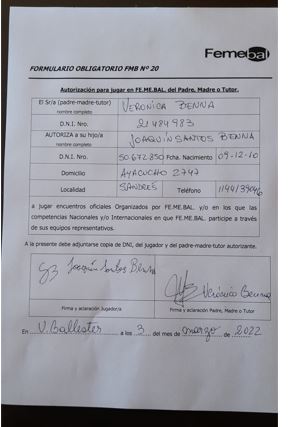 Femebal
FORMULARIO OBLIGATORIO FMB Nº 20
Autorización para jugar en FE.ME.BAL. del Padre, Madre o Tutor.
El Sr/a (padre-madre-tutor) VERONICA BENNA
nombre completo
D.N.I. Nro. 21484983
AUTORIZA a su hijo/a JOAQUIN SANTOS BENNA
nombre completo
D.N.I. Nro. 50.672.850 Fcha. Nacimiento 09-12-10
Domicilio AYACUCHO 2747
Localidad SANDRES Teléfono
a jugar encuentros oficiales Organizados por FE.ME.BAL. y/o en los que las
competencias Nacionales y/o Internacionales en que FE.ME.BAL. participe a través
de sus equipos representativos.
A la presente debe adjuntarse copia de DNI, del jugador y del padre-madre-tutor autorizante.
Joaquín Santos Benna
Verónica Benna
Firma y aclaración Jugador/a Firma y aclaración Padre, Madre o Tutor
En V. Ballester a los 3 del mes de marzo de 2022